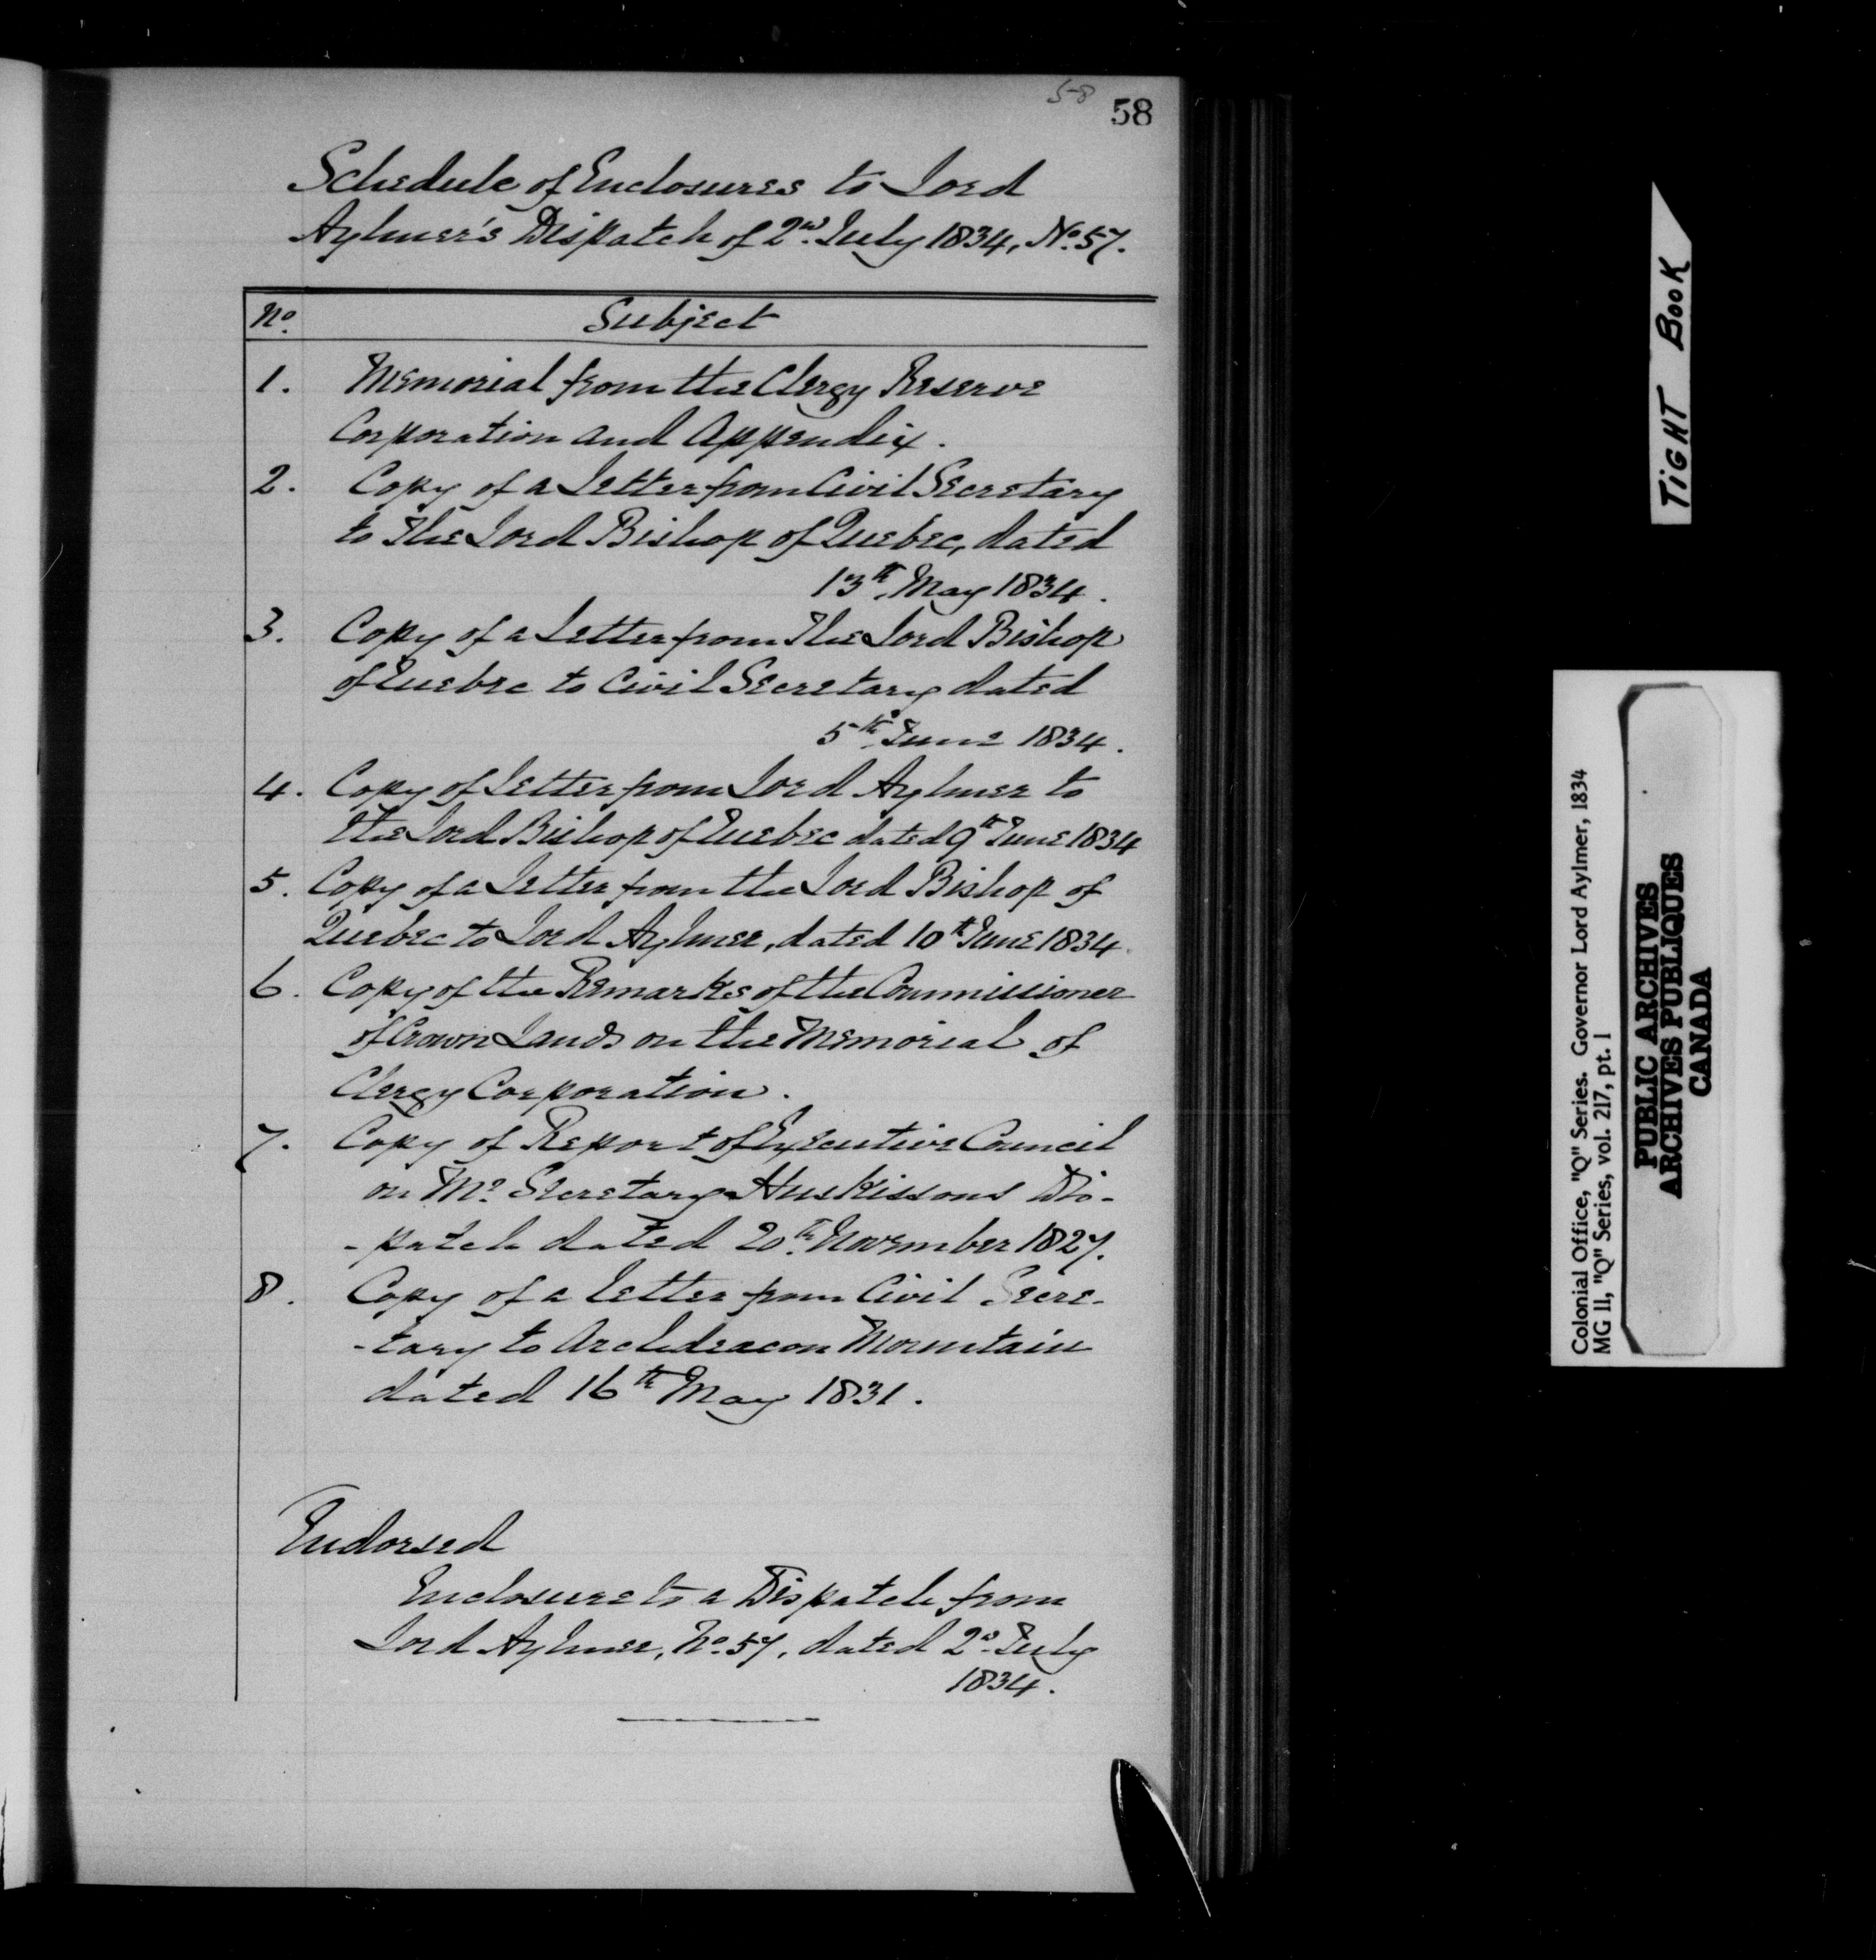 58
58
Schedule of Enclosures to Lord
Aylmer's Dispatch of 2nd July 1834, No. 57.
No. Subject
1. Memorial from the Clergy Reserve
Corporation and Appendix.
2. Copy of a Letter from Civil Secretary
to The Lord Bishop of Quebec, dated
13th. May 1834.
3. Copy of a Letter from The Lord Bishop
of Quebec to Civil Secretary dated
5th. June 1834.
4. Copy of Letter from Lord Aylmer to
the Lord Bishop of Quebec dated 9th June 1834
5. Copy of a Letter from the Lord Bishop of
Quebec to Lord Aylmer, dated 10th June 1834.
6. Copy of the Remarks of the Commissioner
of Crown Lands on the Memorial of
Clergy Corporation.
7. Copy of Report of Executive Council
on Mr. Secretary Huskissons Dis-
-patch dated 20th. November 1827.
8. Copy of a Letter from Civil Secre-
-tary to Archdeacon Mountain
dated 16th May 1831.
Endorsed
Enclosure to a Dispatch from
Lord Aylmer, No. 57, dated 2d. July
1834.
TIGHT BOOK
Colonial Office, "Q" Series. Governor Lord Aylmer, 1834
MG 11, "Q" Series, vol. 217, pt. 1
PUBLIC ARCHIVES
ARCHIVES PUBLIQUES
CANADA